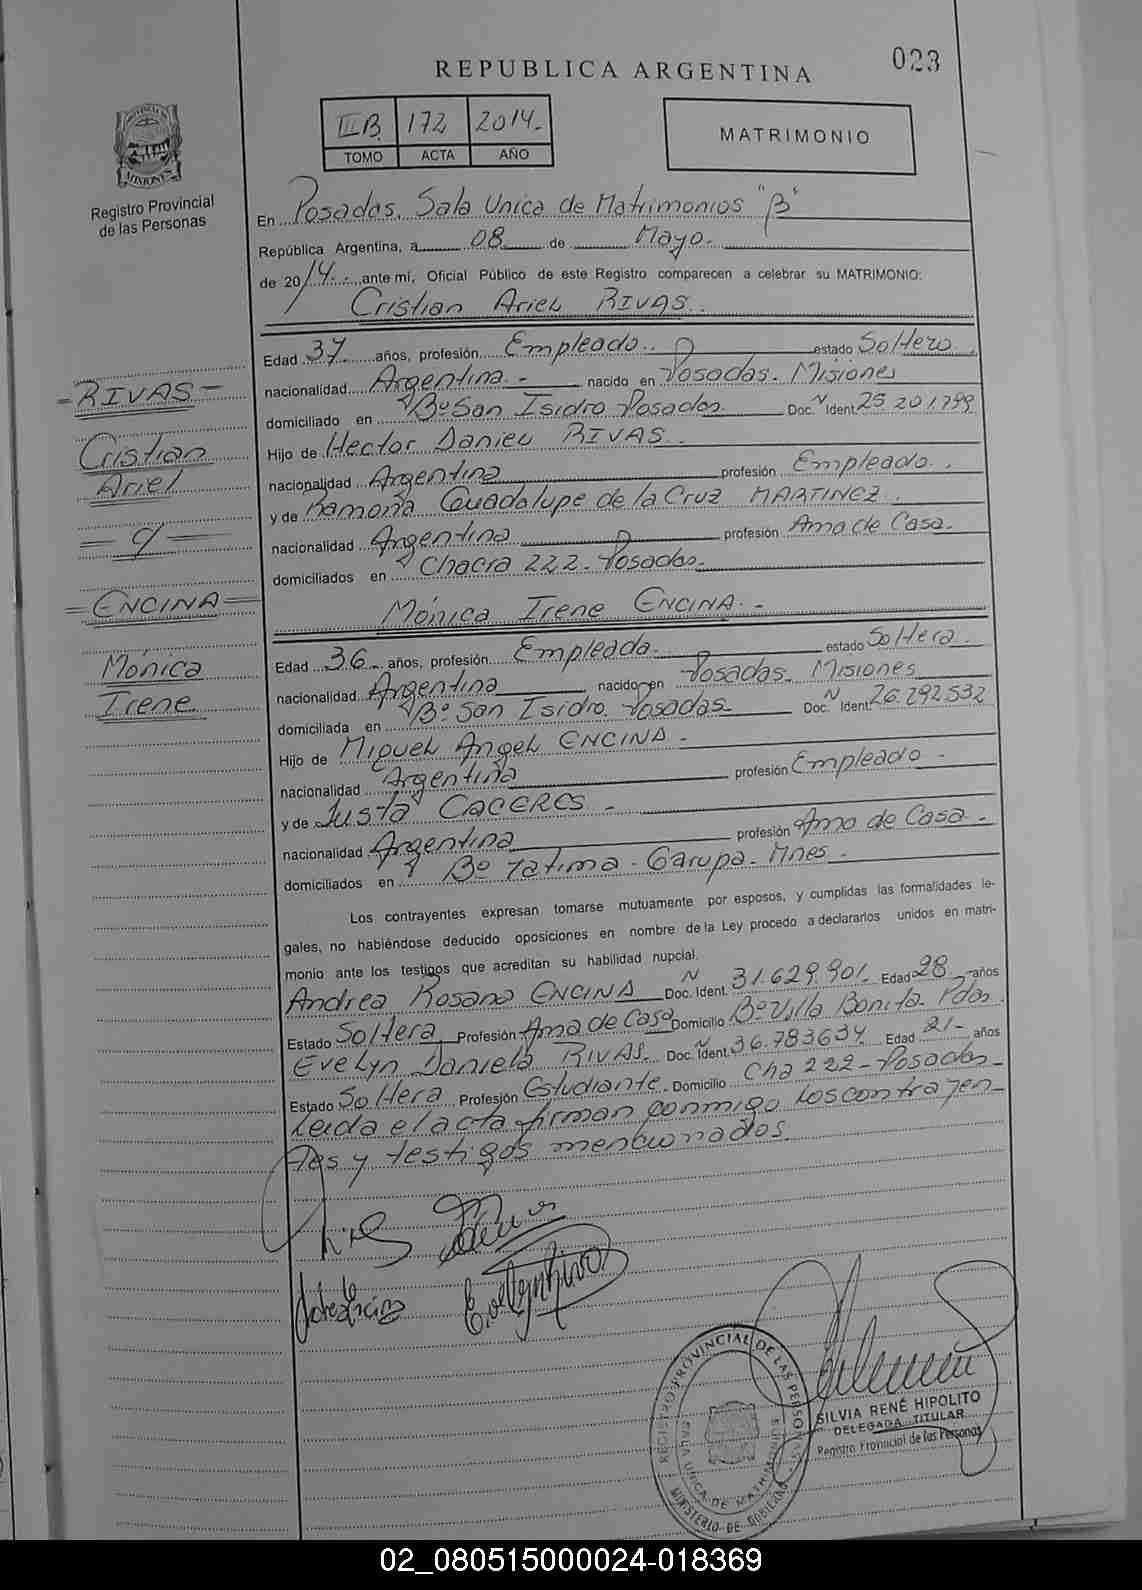 023
REPUBLICA ARGENTINA
IIIB. 172 2014.-
TOMO ACTA AÑO
MATRIMONIO
PROVINCIA DE
MISIONES
Registro Provincial
de las Personas
En Posadas. Sala Unica de Matrimonios "B"
República Argentina, a 08 de Mayo.
de 2014.- ante mí, Oficial Público de este Registro comparecen a celebrar su MATRIMONIO:
Cristian Ariel RIVAS.
Edad 37. años, profesión Empleado. estado Soltero.
nacionalidad Argentina.- nacido en Posadas. Misiones
domiciliado en Bº San Isidro Posadas. Doc. N Ident. 25.201.799
Hijo de Hector Daniel RIVAS.
nacionalidad Argentina profesión Empleado.
y de Ramona Guadalupe de la Cruz MARTINEZ.
nacionalidad Argentina profesión Ama de Casa.
domiciliados en Chacra 222- Posadas.
=RIVAS=
Cristian
Ariel
= c/ =
=ENCINA=
Mónica
Irene
Mónica Irene ENCINA.-
Edad 36.- años, profesión Empleada. estado Soltera.
nacionalidad Argentina nacido en Posadas. Misiones
domiciliada en Bº San Isidro. Posadas. Doc. N Ident. 26.292.532
Hijo de Miguel Angel ENCINA.-
nacionalidad Argentina profesión Empleado-
y de Justa CACERES-
nacionalidad Argentina profesión Ama de Casa-
domiciliados en Bº Fatima- Garupa- Mnes.-
Los contrayentes expresan tomarse mutuamente por esposos, y cumplidas las formalidades le-
gales, no habiéndose deducido oposiciones en nombre de la Ley procedo a declararlos unidos en matri-
monio ante los testigos que acreditan su habilidad nupcial.
Andrea Rosana ENCINA Doc. N Ident. 31.629.901. Edad 28 años
Estado Soltera Profesión Ama de Casa Domicilio Bº Villa Bonita- Pdas.
Evelyn Daniela RIVAS. Doc. N Ident. 36.783634. Edad 21- años
Estado Soltera Profesión Estudiante. Domicilio Cha 222- Posadas-
Leida el acta firman conmigo los contrayen-
tes y testigos mencionados.
Evelyn Rivas
REGISTRO PROVINCIAL DE LAS PERSONAS
SALA UNICA DE MATRIMONIOS
MINISTERIO DE GOBIERNO
SILVIA RENÉ HIPOLITO
DELEGADA TITULAR
Registro Provincial de las Personas
02_080515000024-018369